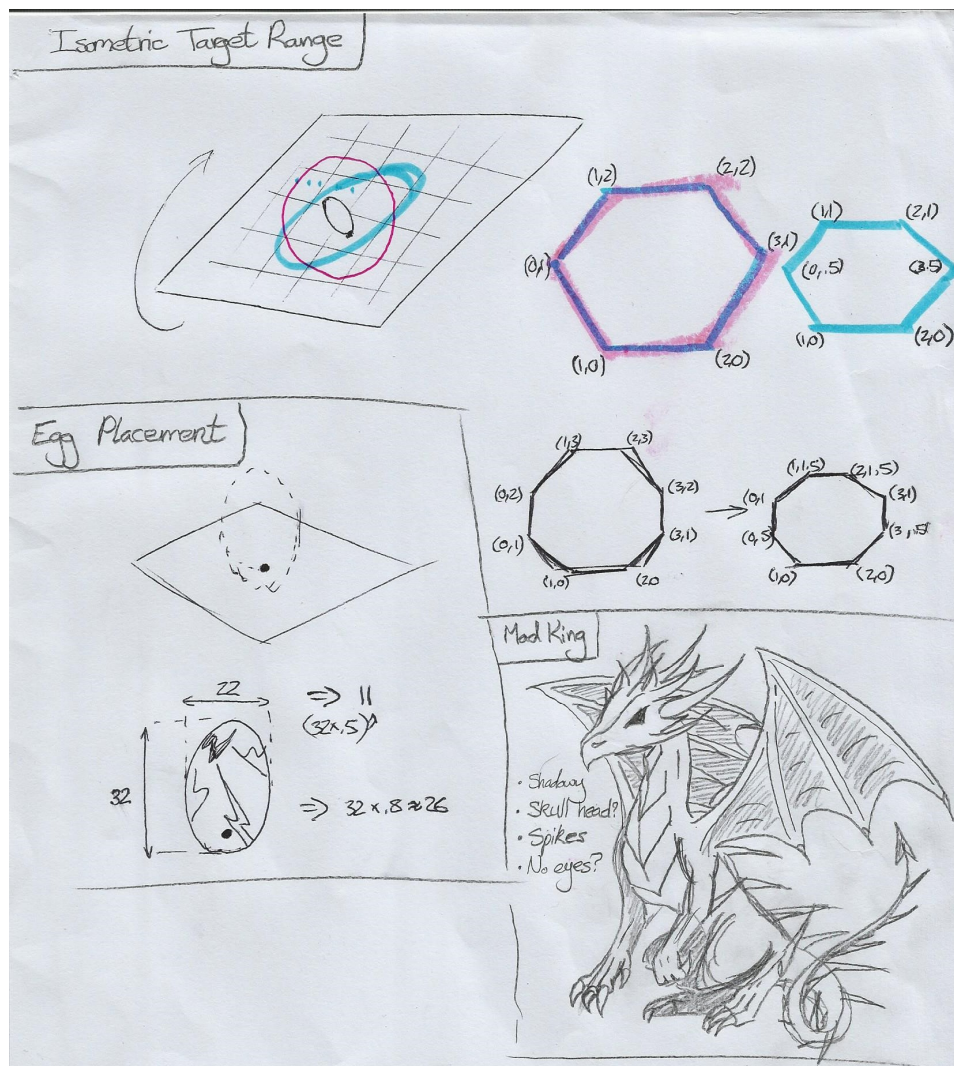 Isometric Target Range
(1,2)
(2,2)
(0,1)
(3,1)
(1,0)
(2,0)
(1,1)
(2,1)
(0,.5)
(3.5)
(1,0)
(2,0)
Egg Placement
(1,3)
(2,3)
(0,2)
(3,2)
(0,1)
(3,1)
(1,0)
(2,0
(1,1,5)
(2,1,5)
(0,1
(3,1)
(0,5)
(3,.5
(1,0)
(2,0)
22
⇒ 11
(32×.5)^
32
⇒ 32 ×.8 ≈ 26
Mad King
• Shadowy
• Skull head?
• Spikes
• No eyes?